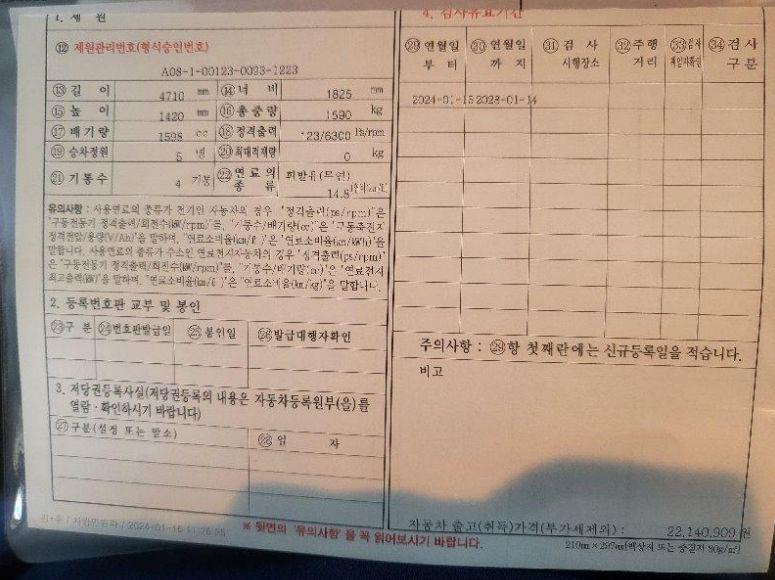 1. 제 원
⑫ 제원관리번호(형식승인번호)
A08-1-00123-0093-1223
⑬ 길 이 4710 mm ⑭ 너 비 1825 mm
⑮ 높 이 1420 mm ⑯ 총중량 1590 kg
⑰ 배기량 1598 cc ⑱ 정격출력 123/6300 Ps/rpm
⑲ 승차정원 5 명 ⑳ 최대적재량 0 kg
㉑ 기통수 4 기통 ㉒ 연료의 종 류 휘발유(무연)
14.8
유의사항 : 사용연료의 종류가 전기인 자동차의 경우 "정격출력(ps/rpm)"은
"구동전동기 정격출력/회전수(kW/rpm)"를, "기통수/배기량(cc)"은 "구동축전지
정격전압/용량(V/Ah)"을 말하며, "연료소비율(km/ℓ)"은 "연료소비율(km/kWh)"를
말합니다. 사용연료의 종류가 수소인 연료전지자동차의 경우 "정격출력(ps/rpm)"
은 "구동전동기 정격출력/회전수(kW/rpm)"를, "기통수/배기량(cc)"은 "연료전지
최고출력(kW)"을 말하며, "연료소비율(km/ℓ)"은 "연료소비율(km/kg)"을 말합니다.
2. 등록번호판 교부 및 봉인
㉓구 분 ㉔번호판발급일 ㉕봉인일 ㉖발급대행자확인
3. 저당권등록사실(저당권등록의 내용은 자동차등록원부(을)를
열람·확인하시기 바랍니다)
㉗구분(설정 또는 말소) ㉘일 자
4. 검사유효기간
㉙연월일 부 터 ㉚연월일 까 지 ㉛검 사 시행장소 ㉜주행 거리 ㉝검사 책임자확인 ㉞검사 구분
2024-01-15 2028-01-14
주의사항 : ㉙항 첫째란에는 신규등록일을 적습니다.
비고
자동차 출고(취득)가격(부가세제외) : 22,140,909 원
210㎜×297㎜[백상지 또는 중질지 80g/㎡]
※ 뒷면의 '유의사항'을 꼭 읽어보시기 바랍니다.